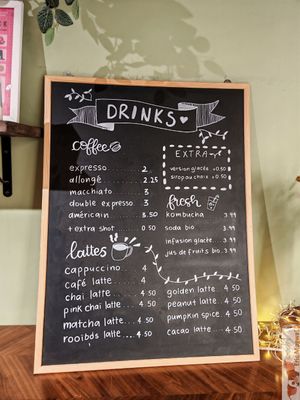 DRINKS
coffee
expresso ...... 2
allongé ...... 2.25
macchiato .... 3
double expresso . 3
américain ..... 3.50
+ extra shot ... 0.50
EXTRA
version glacée .. +0.50
sirop au choix .. +0.50
fresh
kombucha ... 3.99
soda bio ..... 3.99
infusion glacée.. 3.99
jus de fruits bio.. 3.99
lattes
cappuccino ..... 4
café latte ...... 4
chai latte ..... 4 50
pink chai latte .. 4 50
matcha latte ... 4 50
rooibos latte ... 4 50
golden latte .... 4 50
peanut latte .... 4 50
pumpkin spice .. 4 50
cacao latte .... 4 50